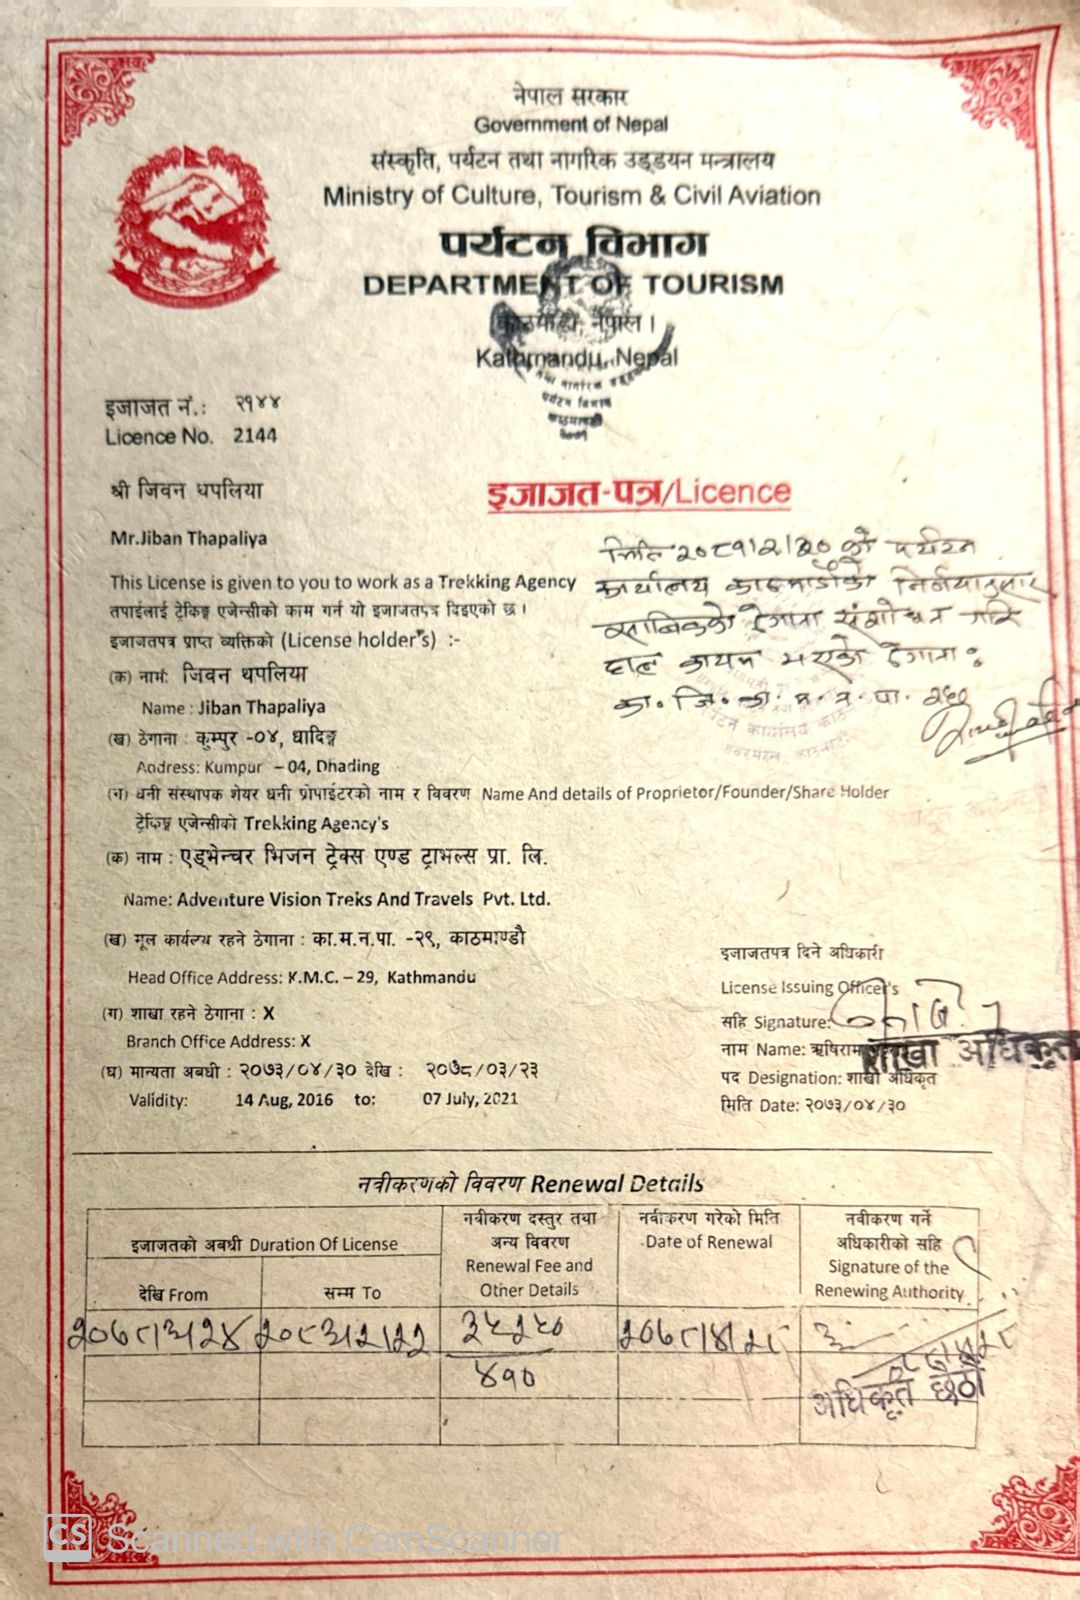 नेपाल सरकार
Government of Nepal
संस्कृति, पर्यटन तथा नागरिक उड्डयन मन्त्रालय
Ministry of Culture, Tourism & Civil Aviation
पर्यटन विभाग
DEPARTMENT OF TOURISM
काठमाडौं, नेपाल ।
Kathmandu, Nepal
इजाजत नं.: २१४४
Licence No. 2144
श्री जिवन थपलिया
इजाजत-पत्र/Licence
Mr.Jiban Thapaliya
मिति २०८१।२।३० को पर्यटन
कार्यालय काठमाडौंको निर्णयानुसार
साबिकको ठेगाना संशोधन गरि
हाल कायम भएको ठेगाना:
का. जि. का. म. न. पा.
This License is given to you to work as a Trekking Agency
तपाईलाई ट्रेकिङ्ग एजेन्सीको काम गर्न यो इजाजतपत्र दिइएको छ ।
इजाजतपत्र प्राप्त व्यक्तिको (License holder's) :-
(क) नामं: जिवन थपलिया
Name : Jiban Thapaliya
(ख) ठेगाना : कुम्पुर -०४, धादिङ्ग
Address: Kumpur – 04, Dhading
(ग) धनी संस्थापक शेयर धनी प्रोपाईटरको नाम र विवरण Name And details of Proprietor/Founder/Share Holder
ट्रेकिङ्ग एजेन्सीको Trekking Agency's
(क) नाम : एड्भेन्चर भिजन ट्रेक्स एण्ड ट्राभल्स प्रा. लि.
Name: Adventure Vision Treks And Travels Pvt. Ltd.
(ख) मूल कार्यलय रहने ठेगाना : का.म.न.पा. -२९, काठमाण्डौ
Head Office Address: K.M.C. – 29, Kathmandu
(ग) शाखा रहने ठेगाना : X
Branch Office Address: X
(घ) मान्यता अबधी : २०७३/०४/३० देखि : २०७८/०३/२३
Validity: 14 Aug, 2016 to: 07 July, 2021
इजाजतपत्र दिने अधिकारी
License Issuing Officer's
सहि Signature:
नाम Name: ऋषिराम
शाखा अधिकृत
पद Designation: शाखा अधिकृत
मिति Date: २०७३/०४/३०
नवीकरणको विवरण Renewal Details
इजाजतको अबधी Duration Of License
देखि From
सम्म To
नवीकरण दस्तुर तथा
अन्य विवरण
Renewal Fee and
Other Details
नवीकरण गरेको मिति
Date of Renewal
नवीकरण गर्ने
अधिकारीको सहि
Signature of the
Renewing Authority
२०७८।३।२४
३५२५०
४१०
२०७८।४।२८
अधिकृत छैठौं
CS Scanned with CamScanner